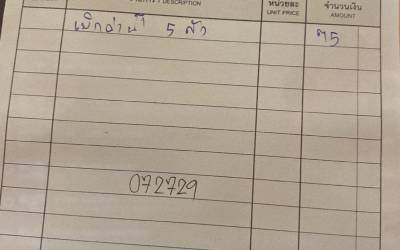 รายการ / DESCRIPTION หน่วยละ จำนวนเงิน
UNIT PRICE AMOUNT
5 ตัว 75
072729